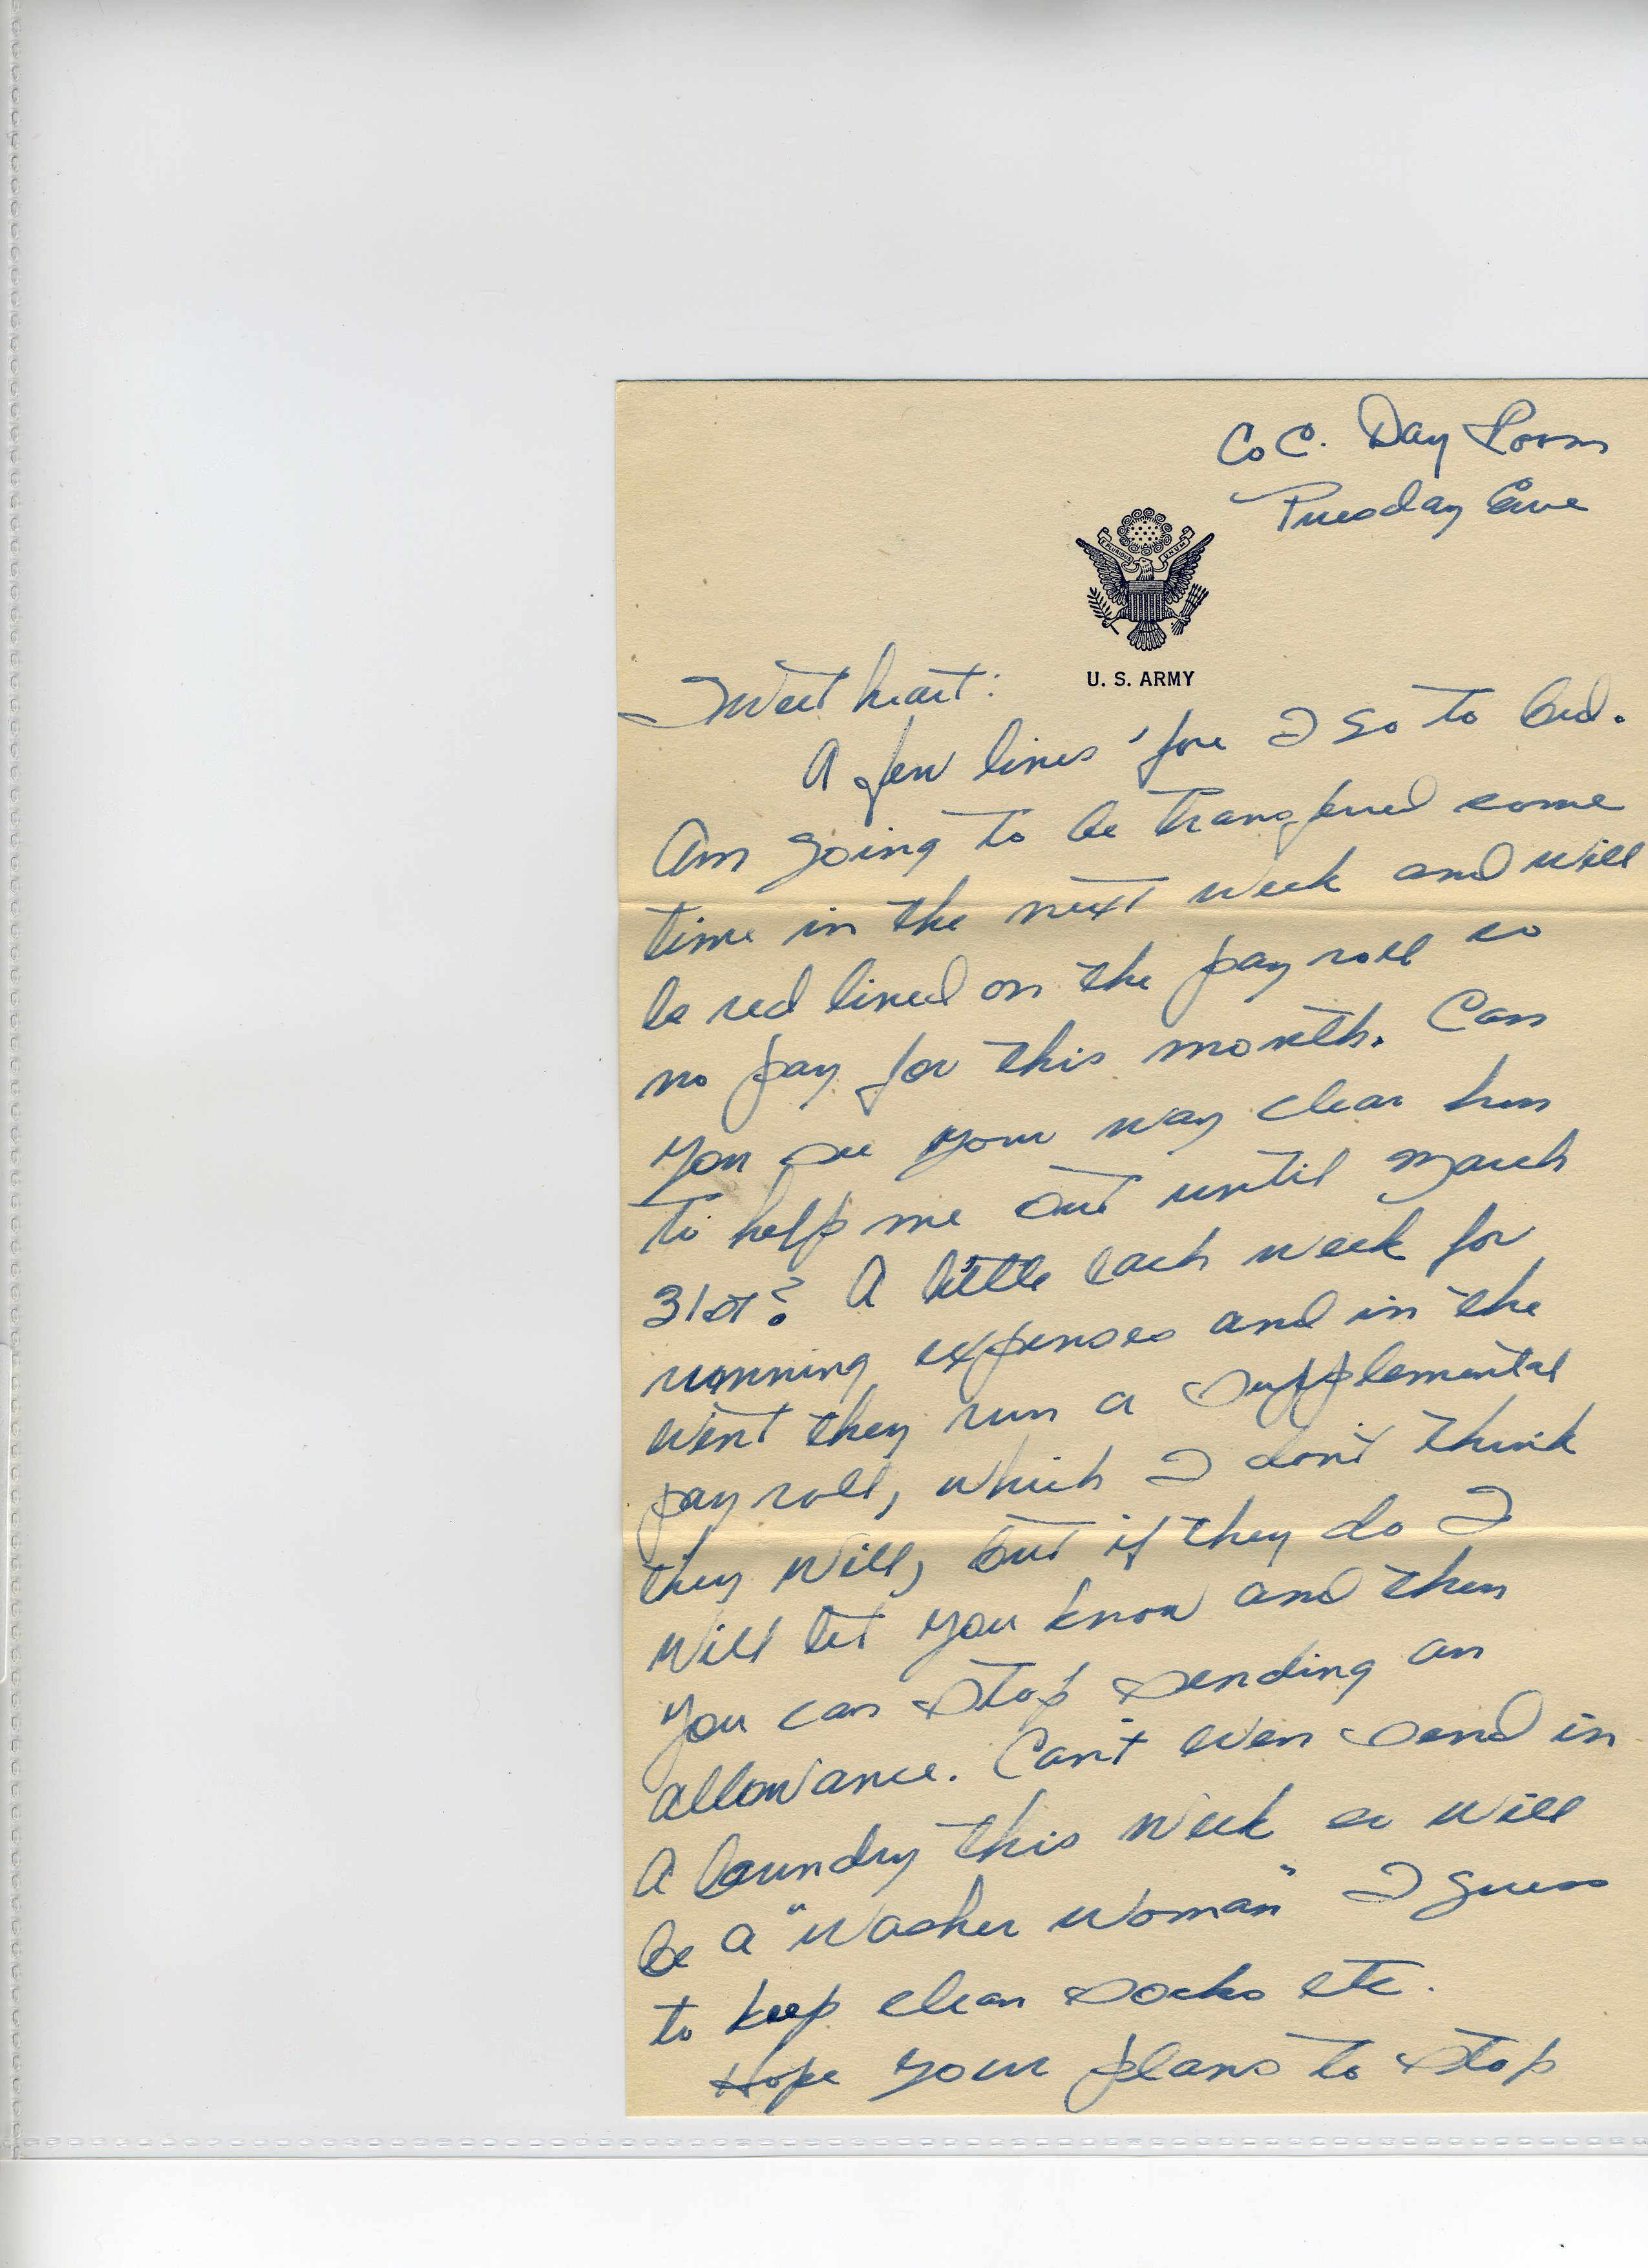 Co C. Day Room
Tuesday Eve
E PLURIBUS UNUM
U. S. ARMY
Sweet heart:
A few lines 'fore I go to bed.
Am going to be transferred some
time in the next week and will
be red lined on the pay roll so
no pay for this month. Can
you see your way clear hun
to help me out until March
31st? A little each week for
running expenses and in the
event they run a supplemental
pay roll, which I don't think
they will, but if they do I
will let you know and then
you can stop sending an
allowance. Can't even send in
a laundry this week so will
be a "washer woman" I guess
to keep clean socks etc.
Hope your plans to stop